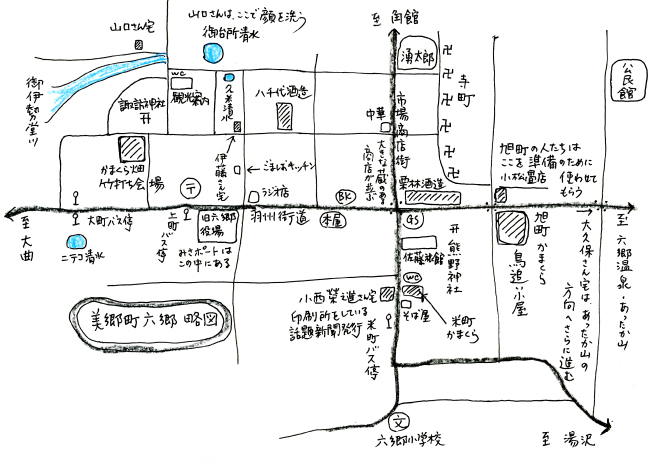 山口さん宅
山口さんは、ここで顔を洗う
御台所清水
至 角館
御伊勢堂川
WC
観光案内
久米清水
八千代酒造
諏訪神社
湧太郎
卍
卍
卍
卍
卍
卍
卍
寺町
公民館
中華
市場商店街
大きな蔵のある
商店が並ぶ
かまくら畑
竹打ち会場
伊藤さん宅
ごましおキッチン
ラジオ店
栗林酒造
旭町の人たちは
ここを準備のために
小松畳店 使わせて
もらう
〒
BK
本屋
GS
至大曲
大町バス停
ニテコ清水
上町バス停
旧六郷
役場
みさぽーとは
この中にある
羽州街道
佐藤旅館
WC
熊野神社
旭町かまくら
鳥追い小屋
大久保さん宅は、あったか山の
方向へさらに進む
至 六郷温泉・あったか山
小西榮之進さん宅
印刷所をしている
話題新聞発行
米町バス停
そば屋
米町
かまくら
美郷町六郷 略図
文
六郷小学校
至 湯沢